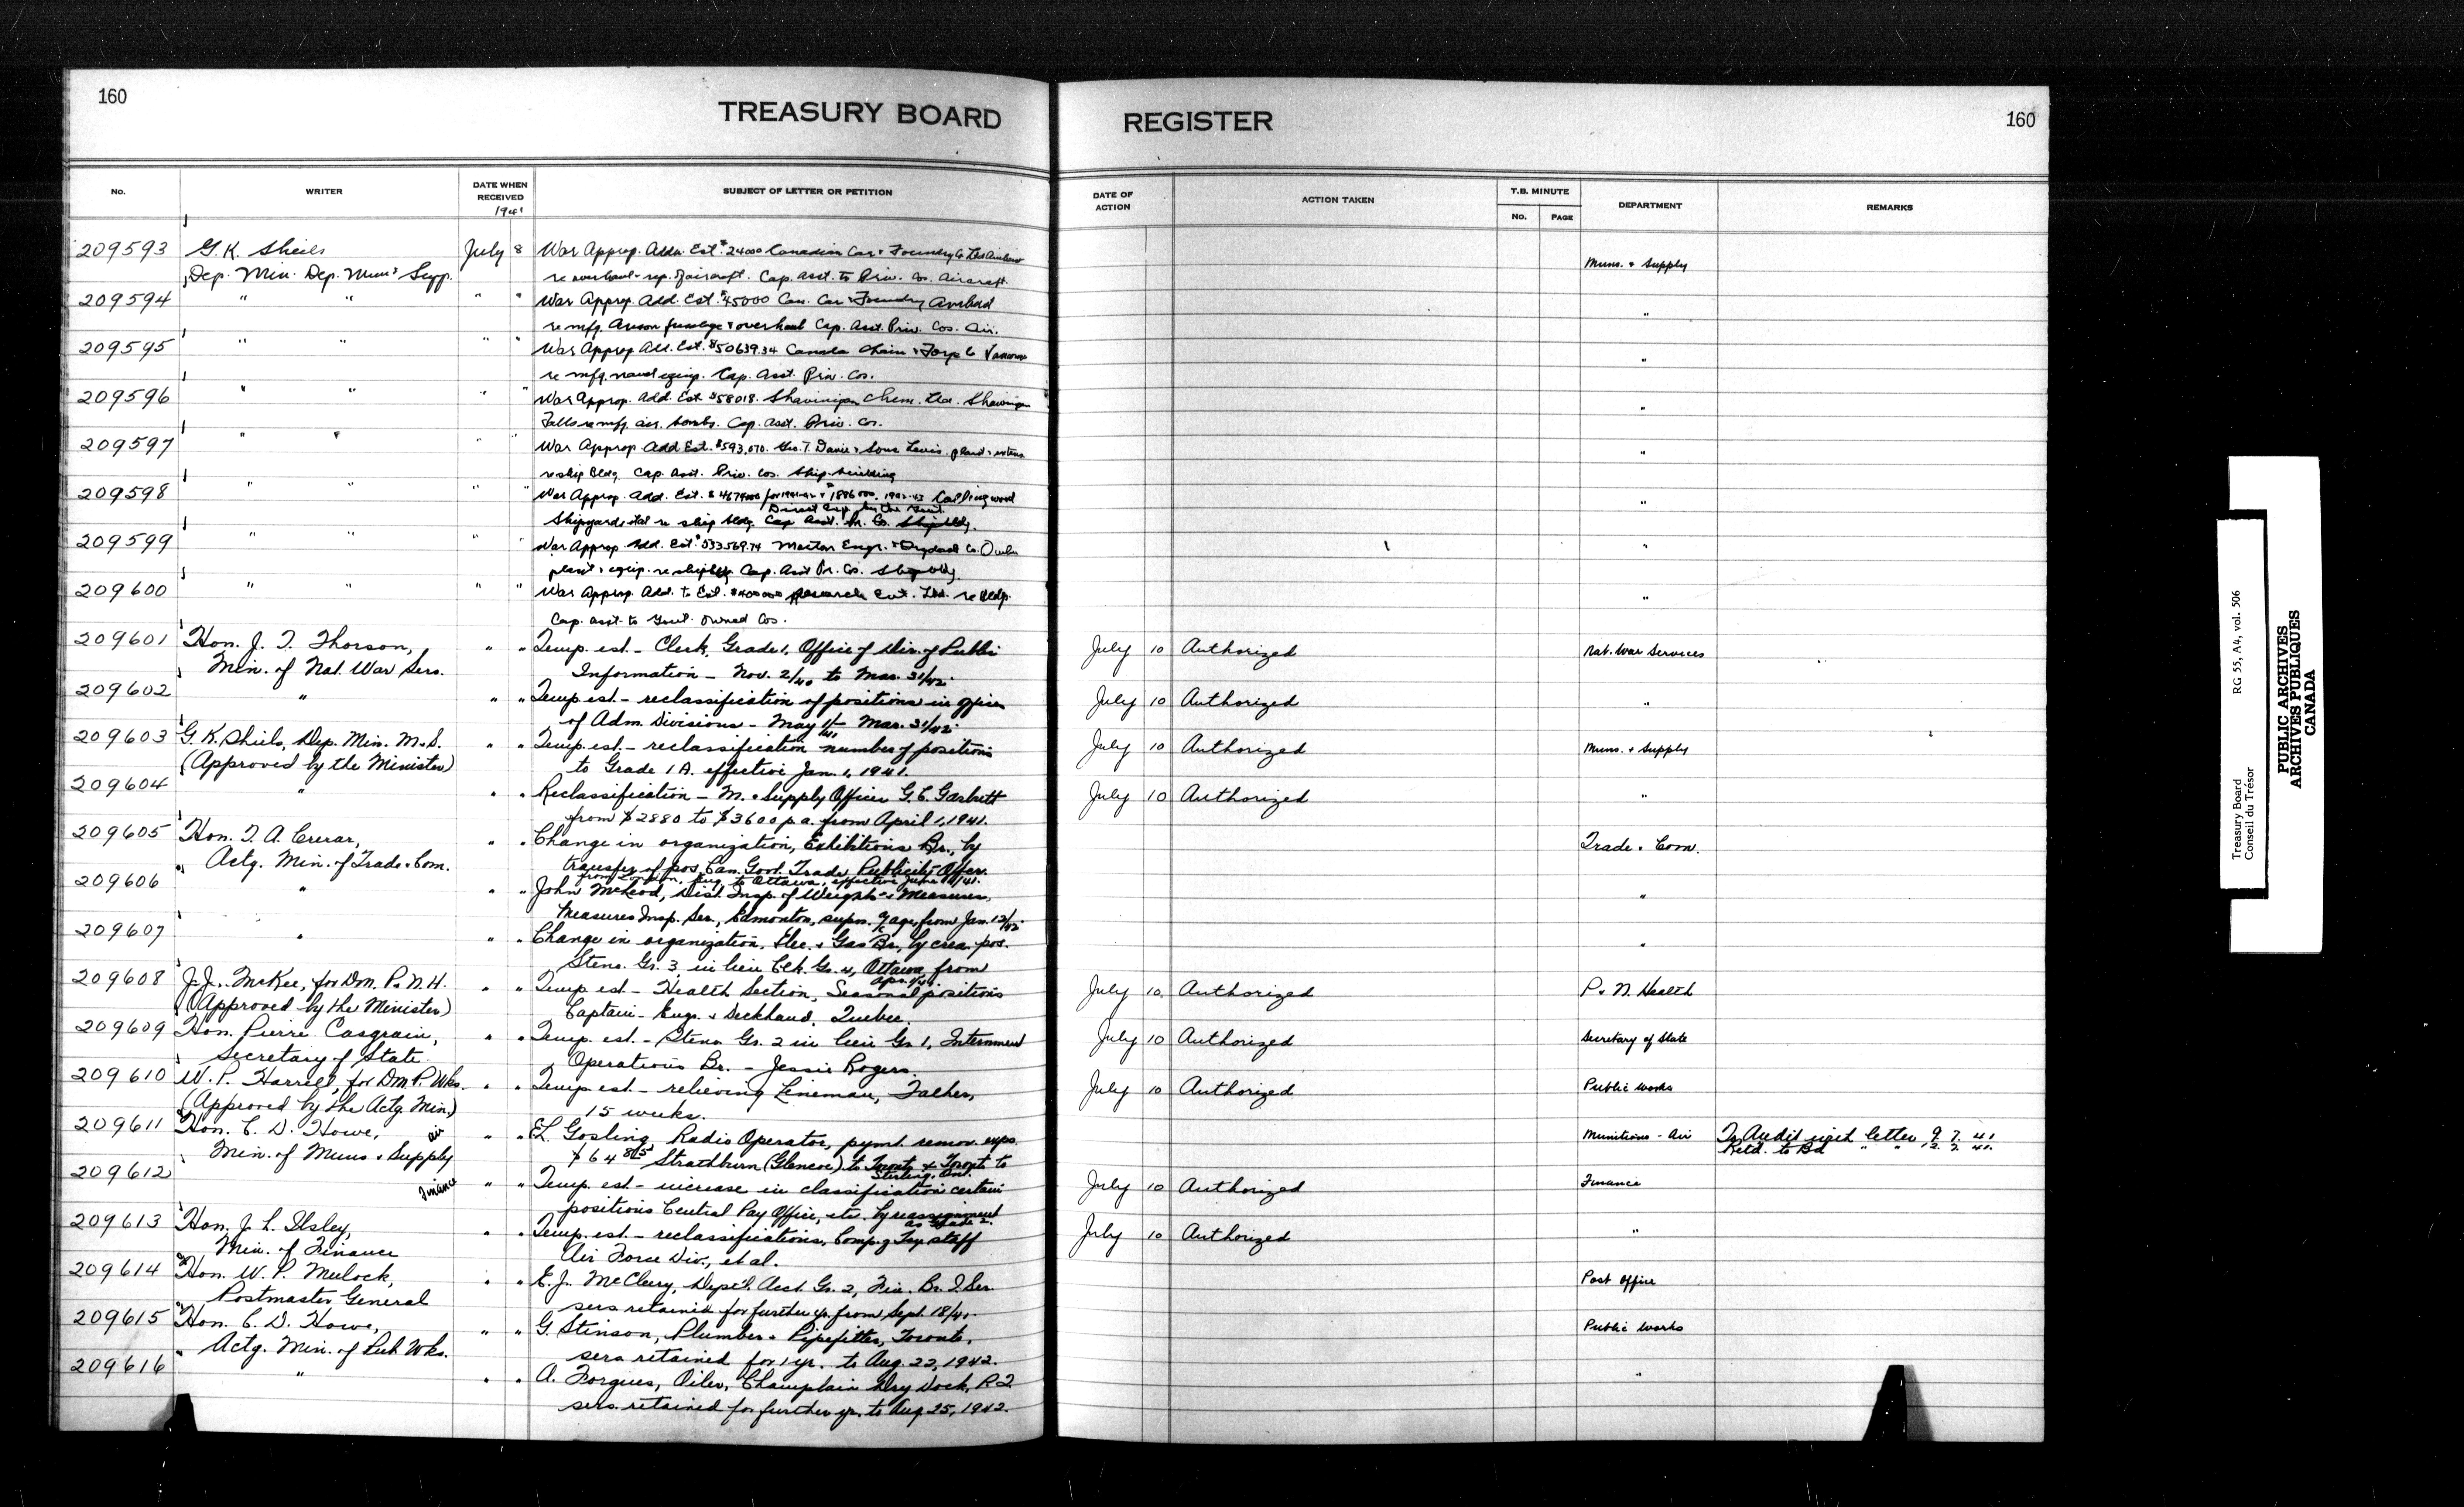 160
TREASURY BOARD
REGISTER
160
No.
WRITER
DATE WHEN RECEIVED
1941
SUBJECT OF LETTER OR PETITION
DATE OF ACTION
ACTION TAKEN
T.B. MINUTE
No.
PAGE
DEPARTMENT
REMARKS
209593 G. K. Sheils July 8 War Approp. Addn. Est. $24000 Canadian Car & Foundry Co Ltd Amherst
Dep. Min. Dep. Mun. & Supp. re overhaul & rep. of aircraft. Cap. Asst. to Priv. Cos. Aircraft. Muns. & Supply
209594 " " " " War Approp. Add. Est. $45000 Can. Car & Foundry Amherst
re mfg. Anson fuselage & overhaul Cap. Asst. Priv. Cos. Air. "
209595 " " " " War Approp Add. Est. $50639.34 Canada Chain & Forge Co Vancouver
re mfg. naval equip. Cap. Asst. Priv. Cos. "
209596 " " " " War Approp. Add. Est $58018. Shawinigan Chem. Ltd. Shawinigan
Falls re mfg. air. bombs. Cap. Asst. Priv. Co. "
209597 " " " " War Approp Add Est. $593,070. Geo. T. Davie & Sons Levis. plant & extens
re ship bldg. Cap. Asst. Priv. Cos. Ship-building "
209598 " " " " War Approp. Add. Est. $4679000 for 1941-42 & $1886000. 1942-43 Collingwood
Direct Cap. by the Govt.
Shipyards et al re ship bldg. Cap Asst. Pr. Co. Shipbldg. "
209599 " " " " War Approp Add. Est. $533569.74 Morton Engr. & Drydock Co. Quebec
plant & equip. re shipbldg Cap. Asst Pr. Co. Shipbldg. "
209600 " " " " War Approp. Add. to Est. $400000 Research Ent. Ltd. re bldgs.
Cap. asst. to Govt. owned Cos. "
209601 Hon. J. T. Thorson, " " Temp. est. - Clerk, Grade 1, Office of Dir. of Public July 10 Authorized Nat. War Services
Min. of Nat. War Sers. Information - Nov. 2/40 to Mar. 31/42.
209602 " " " Temp. est. - reclassification of positions in offices July 10 Authorized "
of Adm. Divisions - May 1/41 Mar. 31/42.
209603 G. K. Sheils, Dep. Min. M. & S. " " Temp. est. - reclassification number of positions July 10 Authorized Muns. & Supply
(Approved by the Minister) to Grade 1A. effective Jan. 1, 1941.
209604 " " " Reclassification - M. & Supply Officer G. C. Garbutt July 10 Authorized "
from $2880 to $3600 p.a. from April 1, 1941.
209605 Hon. T. A. Crerar, " " Change in organization, Exhibitions Br., by Trade & Com.
Actg. Min. of Trade & Com. transfer of pos. Can. Govt. Trade Publicity Officer
from London, Eng. to Ottawa, effective June 1/41.
209606 " " " John McLeod, Dist. Insp. of Weights & Measures, "
Measures Insp. Ser., Edmonton, supn. a/c age, from Jan. 12/42
209607 " " " Change in organization, Elec. & Gas Br., by crea. pos. "
Steno. Gr. 3, in lieu Clk. Gr. 4, Ottawa, from
Apr. 1/41.
209608 J. J. McKee, for Dm. P. & N. H. " " Temp est - Health Section, Seasonal positions July 10 Authorized P. & N. Health
(Approved by the Minister) Captain - Engr. & Deckhand. Quebec.
209609 Hon. Pierre Casgrain, " " Temp. est. - Steno Gr. 2 in lieu Gr. 1, Internment July 10 Authorized Secretary of State
Secretary of State Operations Br. - Jessie Rogers.
209610 W. P. Harrell, for Dm. P. Wks. " " Temp est. - relieving Lineman, Father, July 10 Authorized Public Works
(Approved by the Actg. Min.) 15 weeks.
209611 Hon. C. D. Howe, Air " " E.L. Gosling, Radio Operator, pymt. remov. exps. Munitions - Air To Audit with letter 9. 7. 41
Min. of Muns & Supply $64.85 Strathburn (Glencoe) to Toronto & Toronto to Retd. to Bd " " 12. 7. 41.
Stirling, Ont.
209612 Finance " " Temp. est - increase in classification certain July 10 Authorized Finance
positions Central Pay Office, etc. by reassignment
as Grade 2.
209613 Hon. J. L. Ilsley, " " Temp. est - reclassifications, Comp. of Try staff July 10 Authorized "
Min. of Finance Air Force Div., et al.
209614 Hon. W. P. Mulock, " " E. J. McCleery, Dept'l Acct. Gr. 2, Fin. Br. I. Ser. Post Office
Postmaster General sers retained for further yr. from Sept. 18/41.
209615 Hon. C. D. Howe, " " G. Stinson, Plumber & Pipefitter, Toronto, Public Works
Actg. Min. of Pub Wks. sers retained for 1 yr. to Aug. 22, 1942.
209616 " " " A. Forgues, Oiler, Champlain Dry Dock, P.Q. "
sers. retained for further yr. to Aug 25, 1942.
Treasury Board RG 55, A4, vol. 506
Conseil du Trésor
PUBLIC ARCHIVES
ARCHIVES PUBLIQUES
CANADA